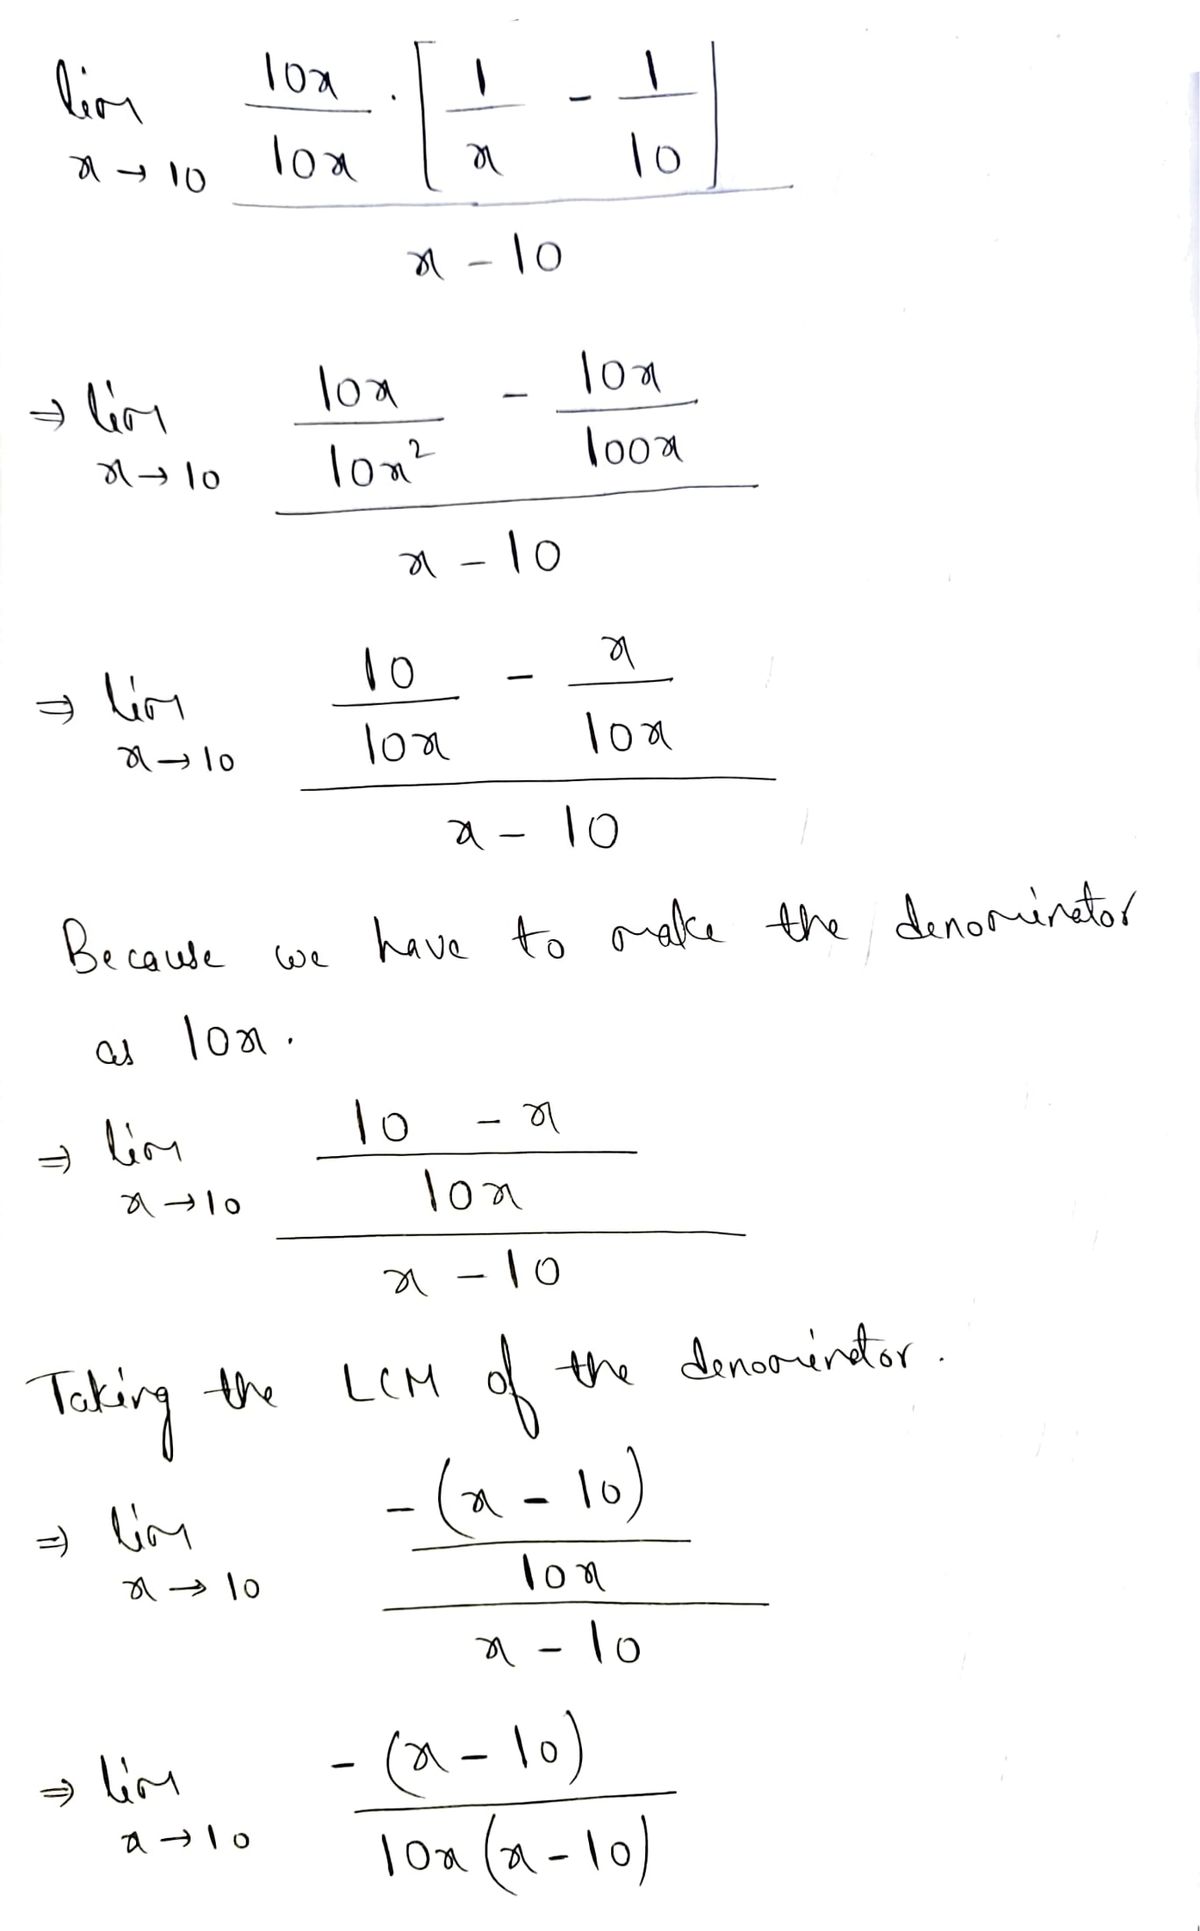 lim x→10 10x/10x · [1/x - 1/10] / x - 10
⇒ lim x→10 10x/10x² - 10x/100x / x - 10
⇒ lim x→10 10/10x - x/10x / x - 10
Because we have to make the denominator
as 10x.
⇒ lim x→10 10 - x / 10x / x - 10
Taking the LCM of the denominator.
⇒ lim x→10 -(x - 10) / 10x / x - 10
⇒ lim x→10 -(x - 10) / 10x(x - 10)